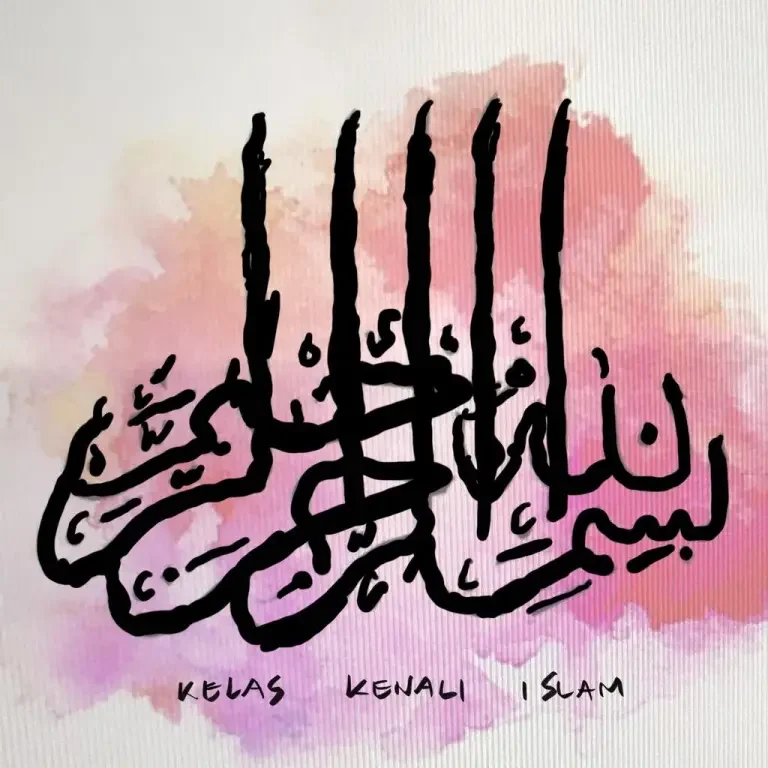 بسم الله الرحمن الرحيم
KELAS KENALI ISLAM